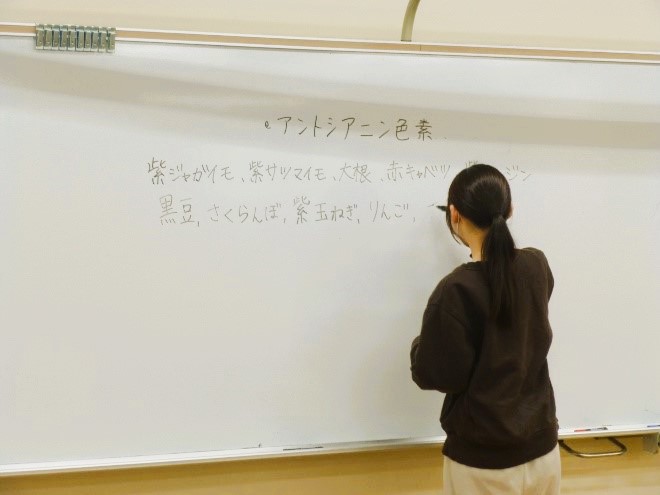 • アントシアニン色素
紫ジャガイモ、紫サツマイモ、大根、赤キャベツ、紫ニンジン
黒豆、さくらんぼ、紫玉ねぎ、りんご、